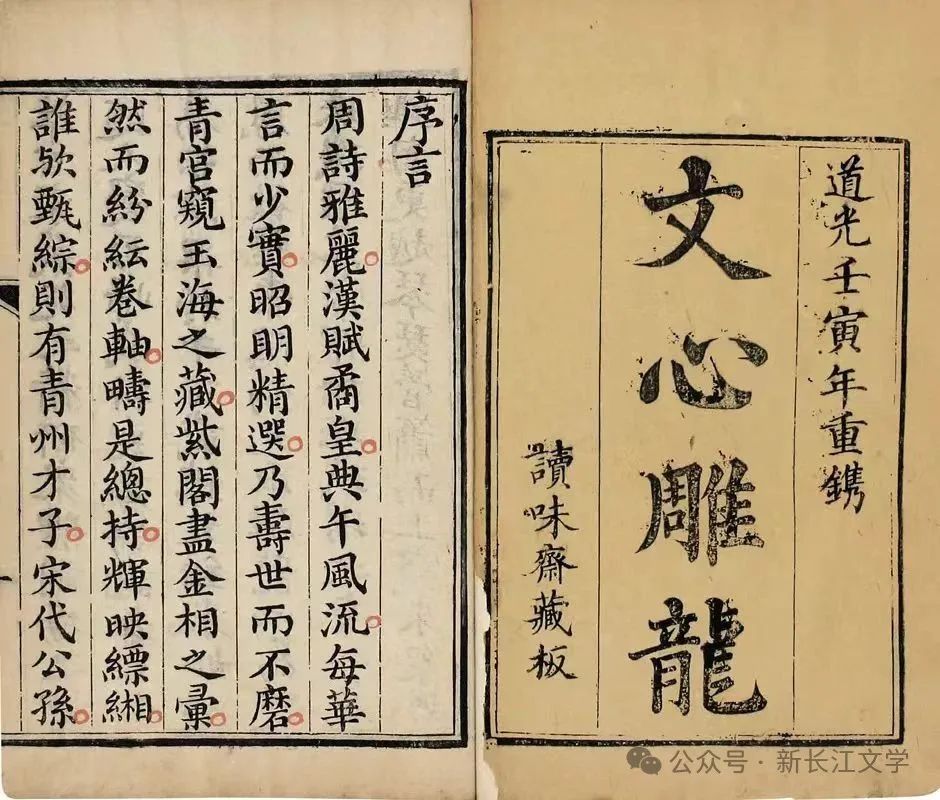 道光壬寅年重鐫
文心雕龍
讀味齋藏板
序言
周詩雅麗漢賦矞皇典午風流每華
言而少實昭明精選乃壽世而不磨
青宮窺玉海之藏紫閣盡金相之彙
然而紛紜卷軸疇是總持輝映縹緗
誰歟甄綜則有青州才子宋代公孫
公众号·新长江文学